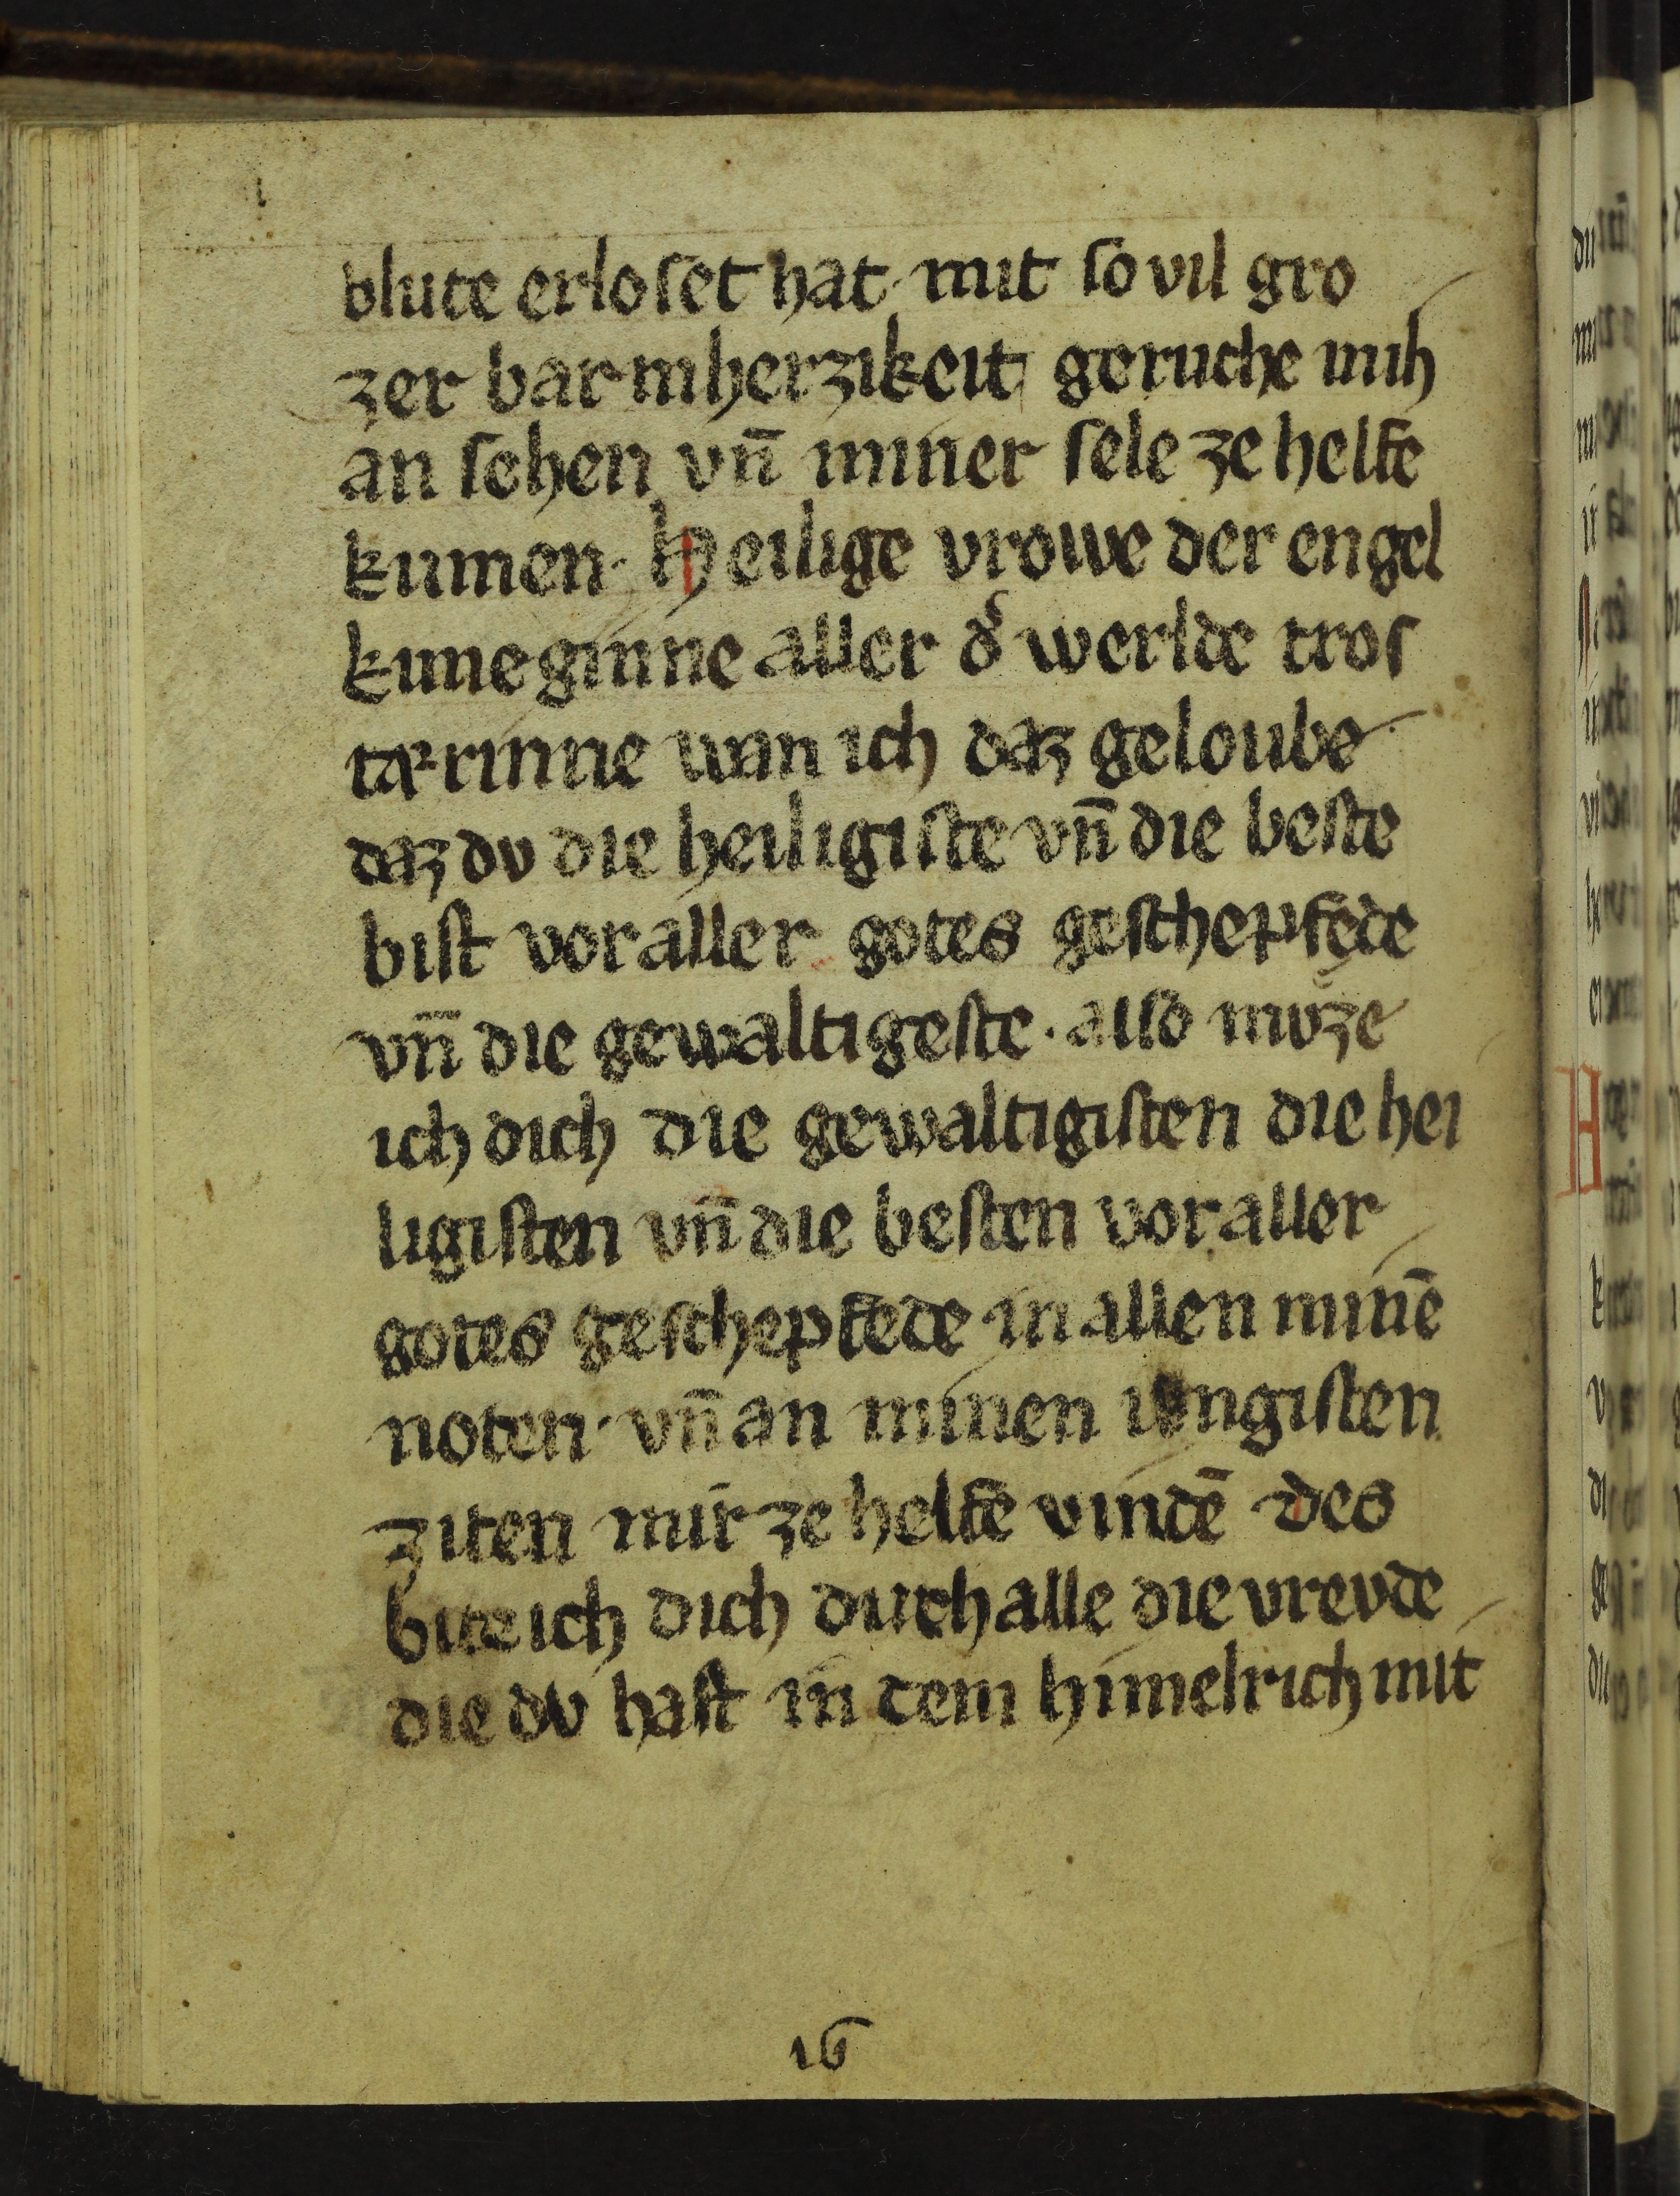 blute erloſet hat· mit ſo vil gro
zer barmherzikeit geruche mih
an ſehen vn̄ miner ſele ze helfe
kumen· Heilige vrowe der engel
kuneginne aller d͛ werlde troſ
terinne wan ich daz geloube
daz dv die heiligiſte vn̄ die beſte
biſt vor aller gotes geſchepfede
vn̄ die gewaltigeſte· alſo mvͦze
ich dich die gewaltigiſten die hei
ligiſten vn̄ die beſten vor aller
gotes geſchepfede in allen minē
noten· vn̄ an minen iungiſten
ziten mir ze helfe vindē des
bite ich dich durch alle die vrevde
die dv haſt in dem himelrich mit
16